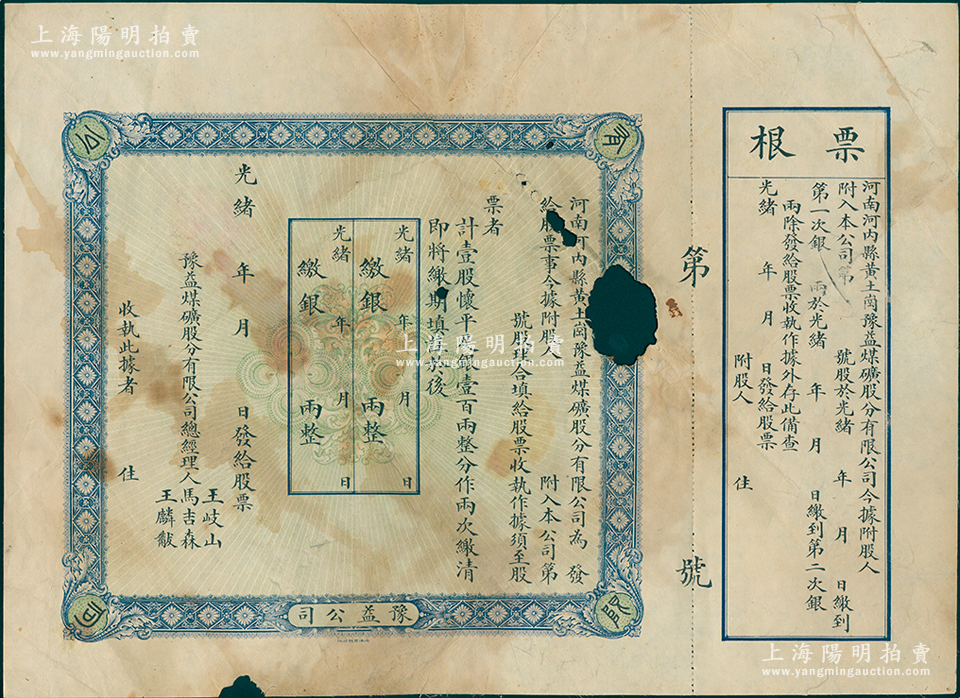 上海陽明拍賣
www.yangmingauction.com
上海陽明拍賣
www.yangmingauction.com
票根
河南河內縣黃土崗豫益煤礦股分有限公司今據附股人
附入本公司第 號股於光緒 年 月 日繳到
第一次銀 兩於光緒 年 月 日繳到第二次銀
兩除發給股票收執作據外存此備查
光緒 年 月 日發給股票
附股人 住
第 號
有限公司
河南河內縣黃土崗豫益煤礦股分有限公司為 發
給股票事今據附股 附入本公司第
號股理合填給股票收執作據須至股
票者
計壹股懷平 銀壹百兩整分作兩次繳清
即將繳期填 後
光緒 年 月 日
繳銀 兩整
光緒 年 月 日
繳銀 兩整
光緒 年 月 日發給股票
豫益煤礦股分有限公司總經理人
王岐山
馬吉森
王麟黻
收執此據者 住
豫益公司
上海陽明拍賣
www.yangmingauction.com
上海陽明拍賣
www.yangmingauction.com